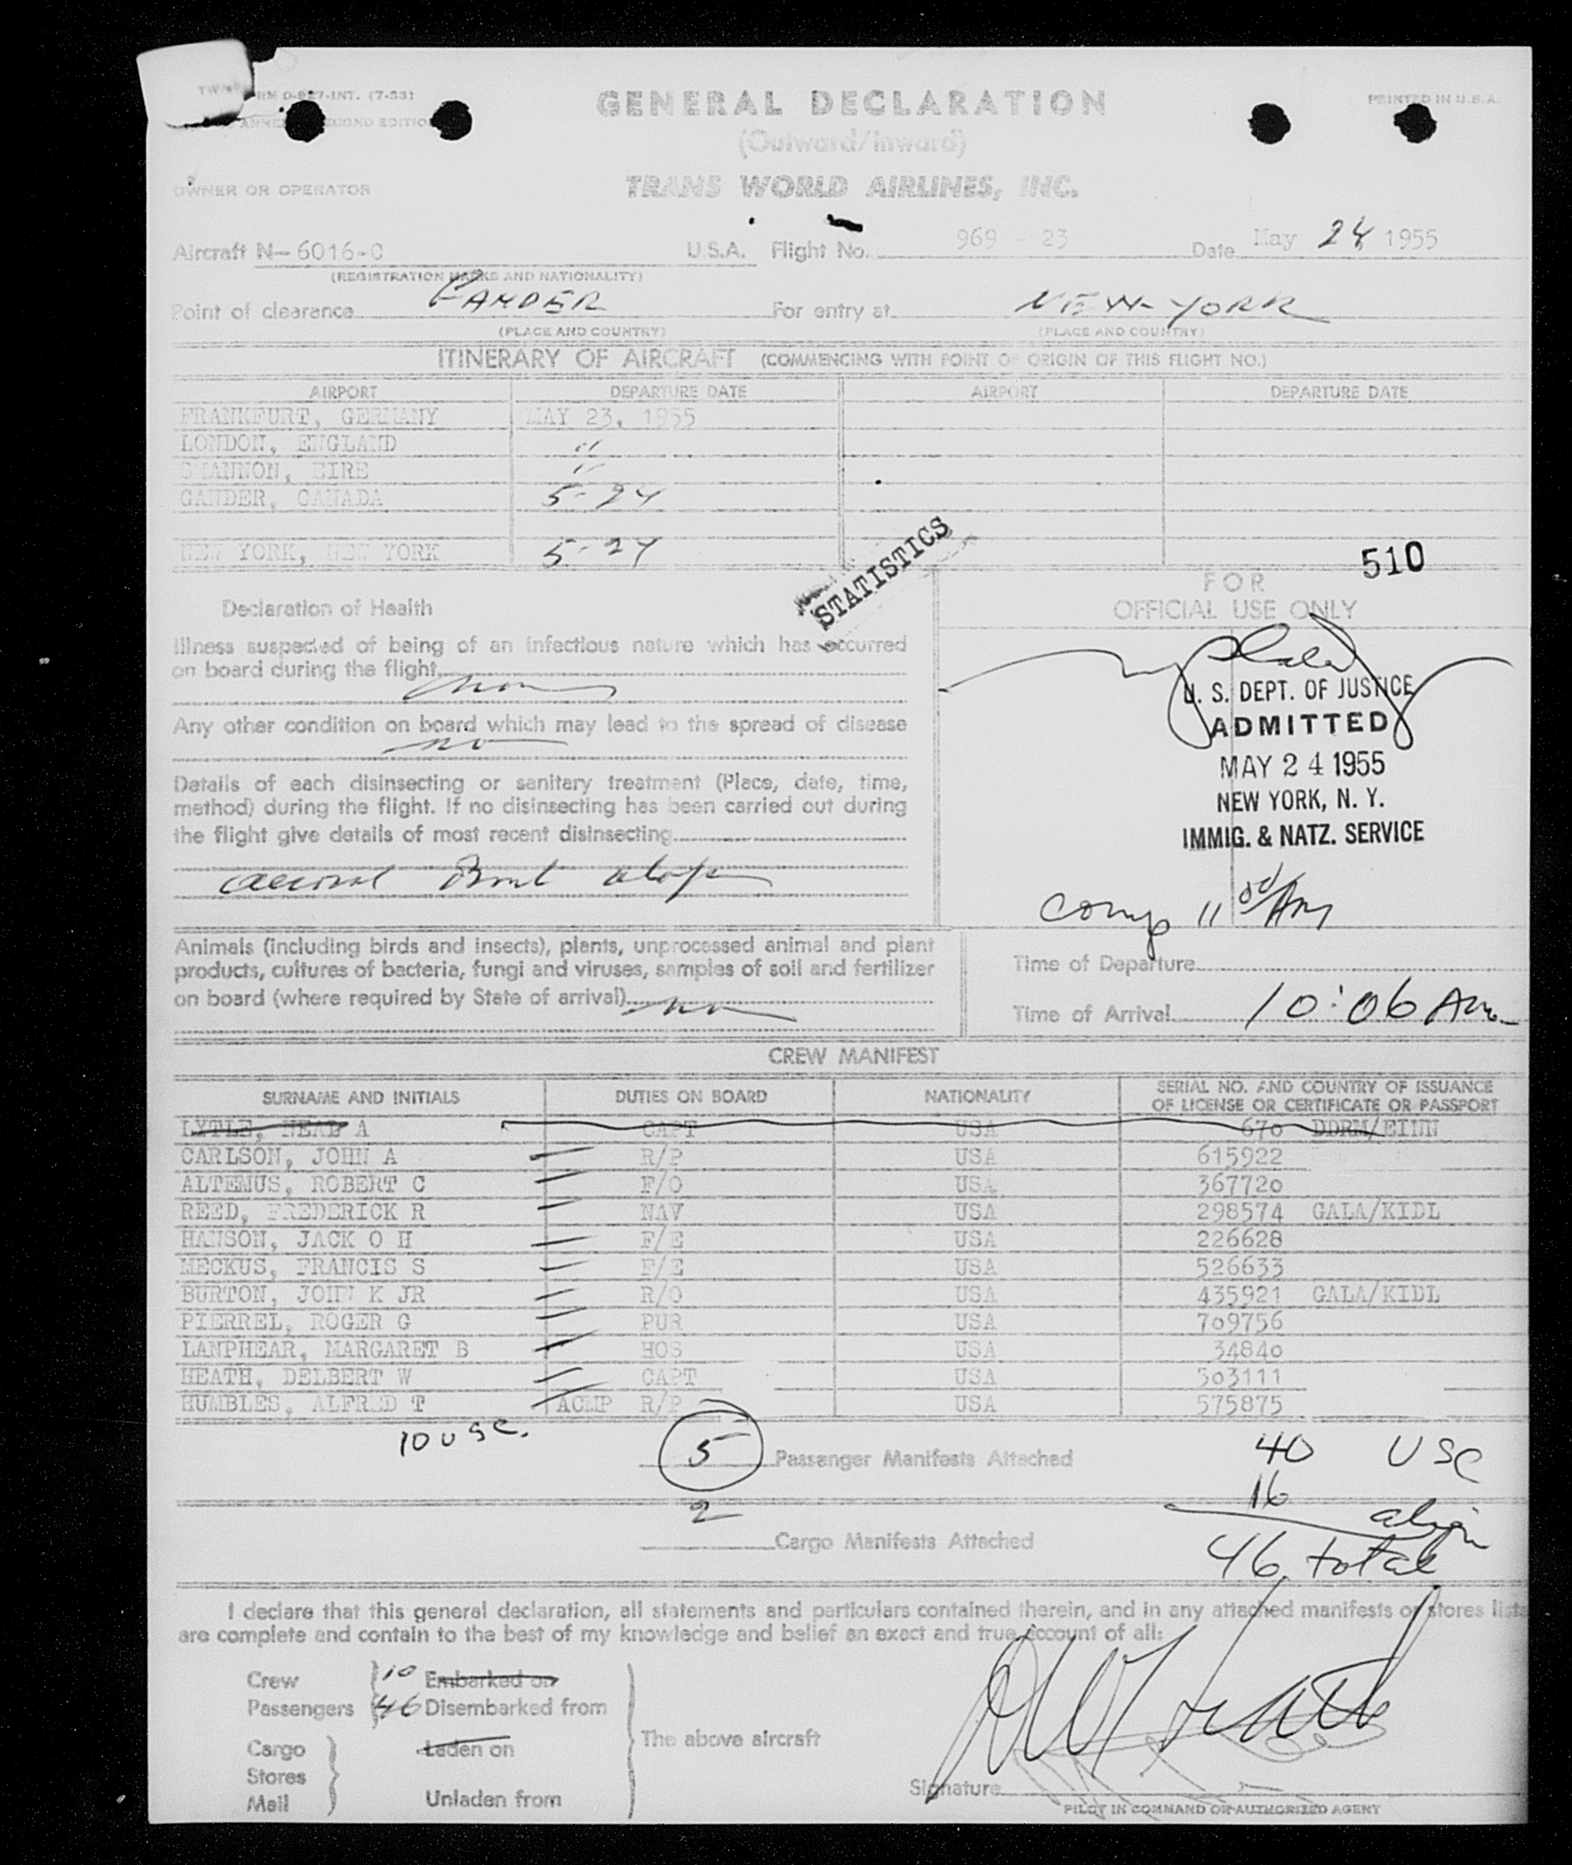 GENERAL DECLARATION
PRINTED IN U.S.A.
(Outward/Inward)
OWNER OR OPERATOR
TRANS WORLD AIRLINES, INC.
Aircraft N-6016-C U.S.A. Flight No. 969 - 23 Date May 24 1955
(REGISTRATION MARKS AND NATIONALITY)
Point of clearance GANDER For entry at NEW-YORK
(PLACE AND COUNTRY) (PLACE AND COUNTRY)
ITINERARY OF AIRCRAFT (COMMENCING WITH POINT OF ORIGIN OF THIS FLIGHT NO.)
AIRPORT DEPARTURE DATE AIRPORT DEPARTURE DATE
FRANKFURT, GERMANY MAY 23, 1955
LONDON, ENGLAND "
SHANNON, EIRE "
GANDER, CANADA 5-24
NEW YORK, NEW YORK 5-24
STATISTICS
510
FOR
OFFICIAL USE ONLY
Declaration of Health
Illness suspected of being of an infectious nature which has occurred
on board during the flight
Any other condition on board which may lead to the spread of disease
no
Details of each disinsecting or sanitary treatment (Place, date, time,
method) during the flight. If no disinsecting has been carried out during
the flight give details of most recent disinsecting
aerosol Bomb
U. S. DEPT. OF JUSTICE
ADMITTED
MAY 24 1955
NEW YORK, N. Y.
IMMIG. & NATZ. SERVICE
comp 11 00 AM
Animals (including birds and insects), plants, unprocessed animal and plant
products, cultures of bacteria, fungi and viruses, samples of soil and fertilizer
on board (where required by State of arrival)
Time of Departure
Time of Arrival 10:06 Am
CREW MANIFEST
SURNAME AND INITIALS DUTIES ON BOARD NATIONALITY SERIAL NO. AND COUNTRY OF ISSUANCE
OF LICENSE OR CERTIFICATE OR PASSPORT
LYTLE, NEAD A CAPT USA 670 DDRM/EINN
CARLSON, JOHN A R/P USA 615922
ALTEMUS, ROBERT C F/O USA 367720
REED, FREDERICK R NAV USA 298574 GALA/KIDL
HANSON, JACK O H F/E USA 226628
MECKUS, FRANCIS S F/E USA 526633
BURTON, JOHN K JR R/O USA 435921 GALA/KIDL
PIERREL, ROGER G PUR USA 709756
LAMPHEAR, MARGARET B HOS USA 34840
HEATH, DELBERT W CAPT USA 503111
HUMBLES, ALFRED T ACMP R/P USA 575875
10 USC.
5 Passenger Manifests Attached
40 USC
16 alien
46 total
2 Cargo Manifests Attached
I declare that this general declaration, all statements and particulars contained therein, and in any attached manifests or stores lists
are complete and contain to the best of my knowledge and belief an exact and true account of all:
Crew 10 Embarked on
Passengers 46 Disembarked from
The above aircraft
Cargo Laden on
Stores
Mail Unladen from
DW Heath
Signature
PILOT IN COMMAND OR AUTHORIZED AGENT